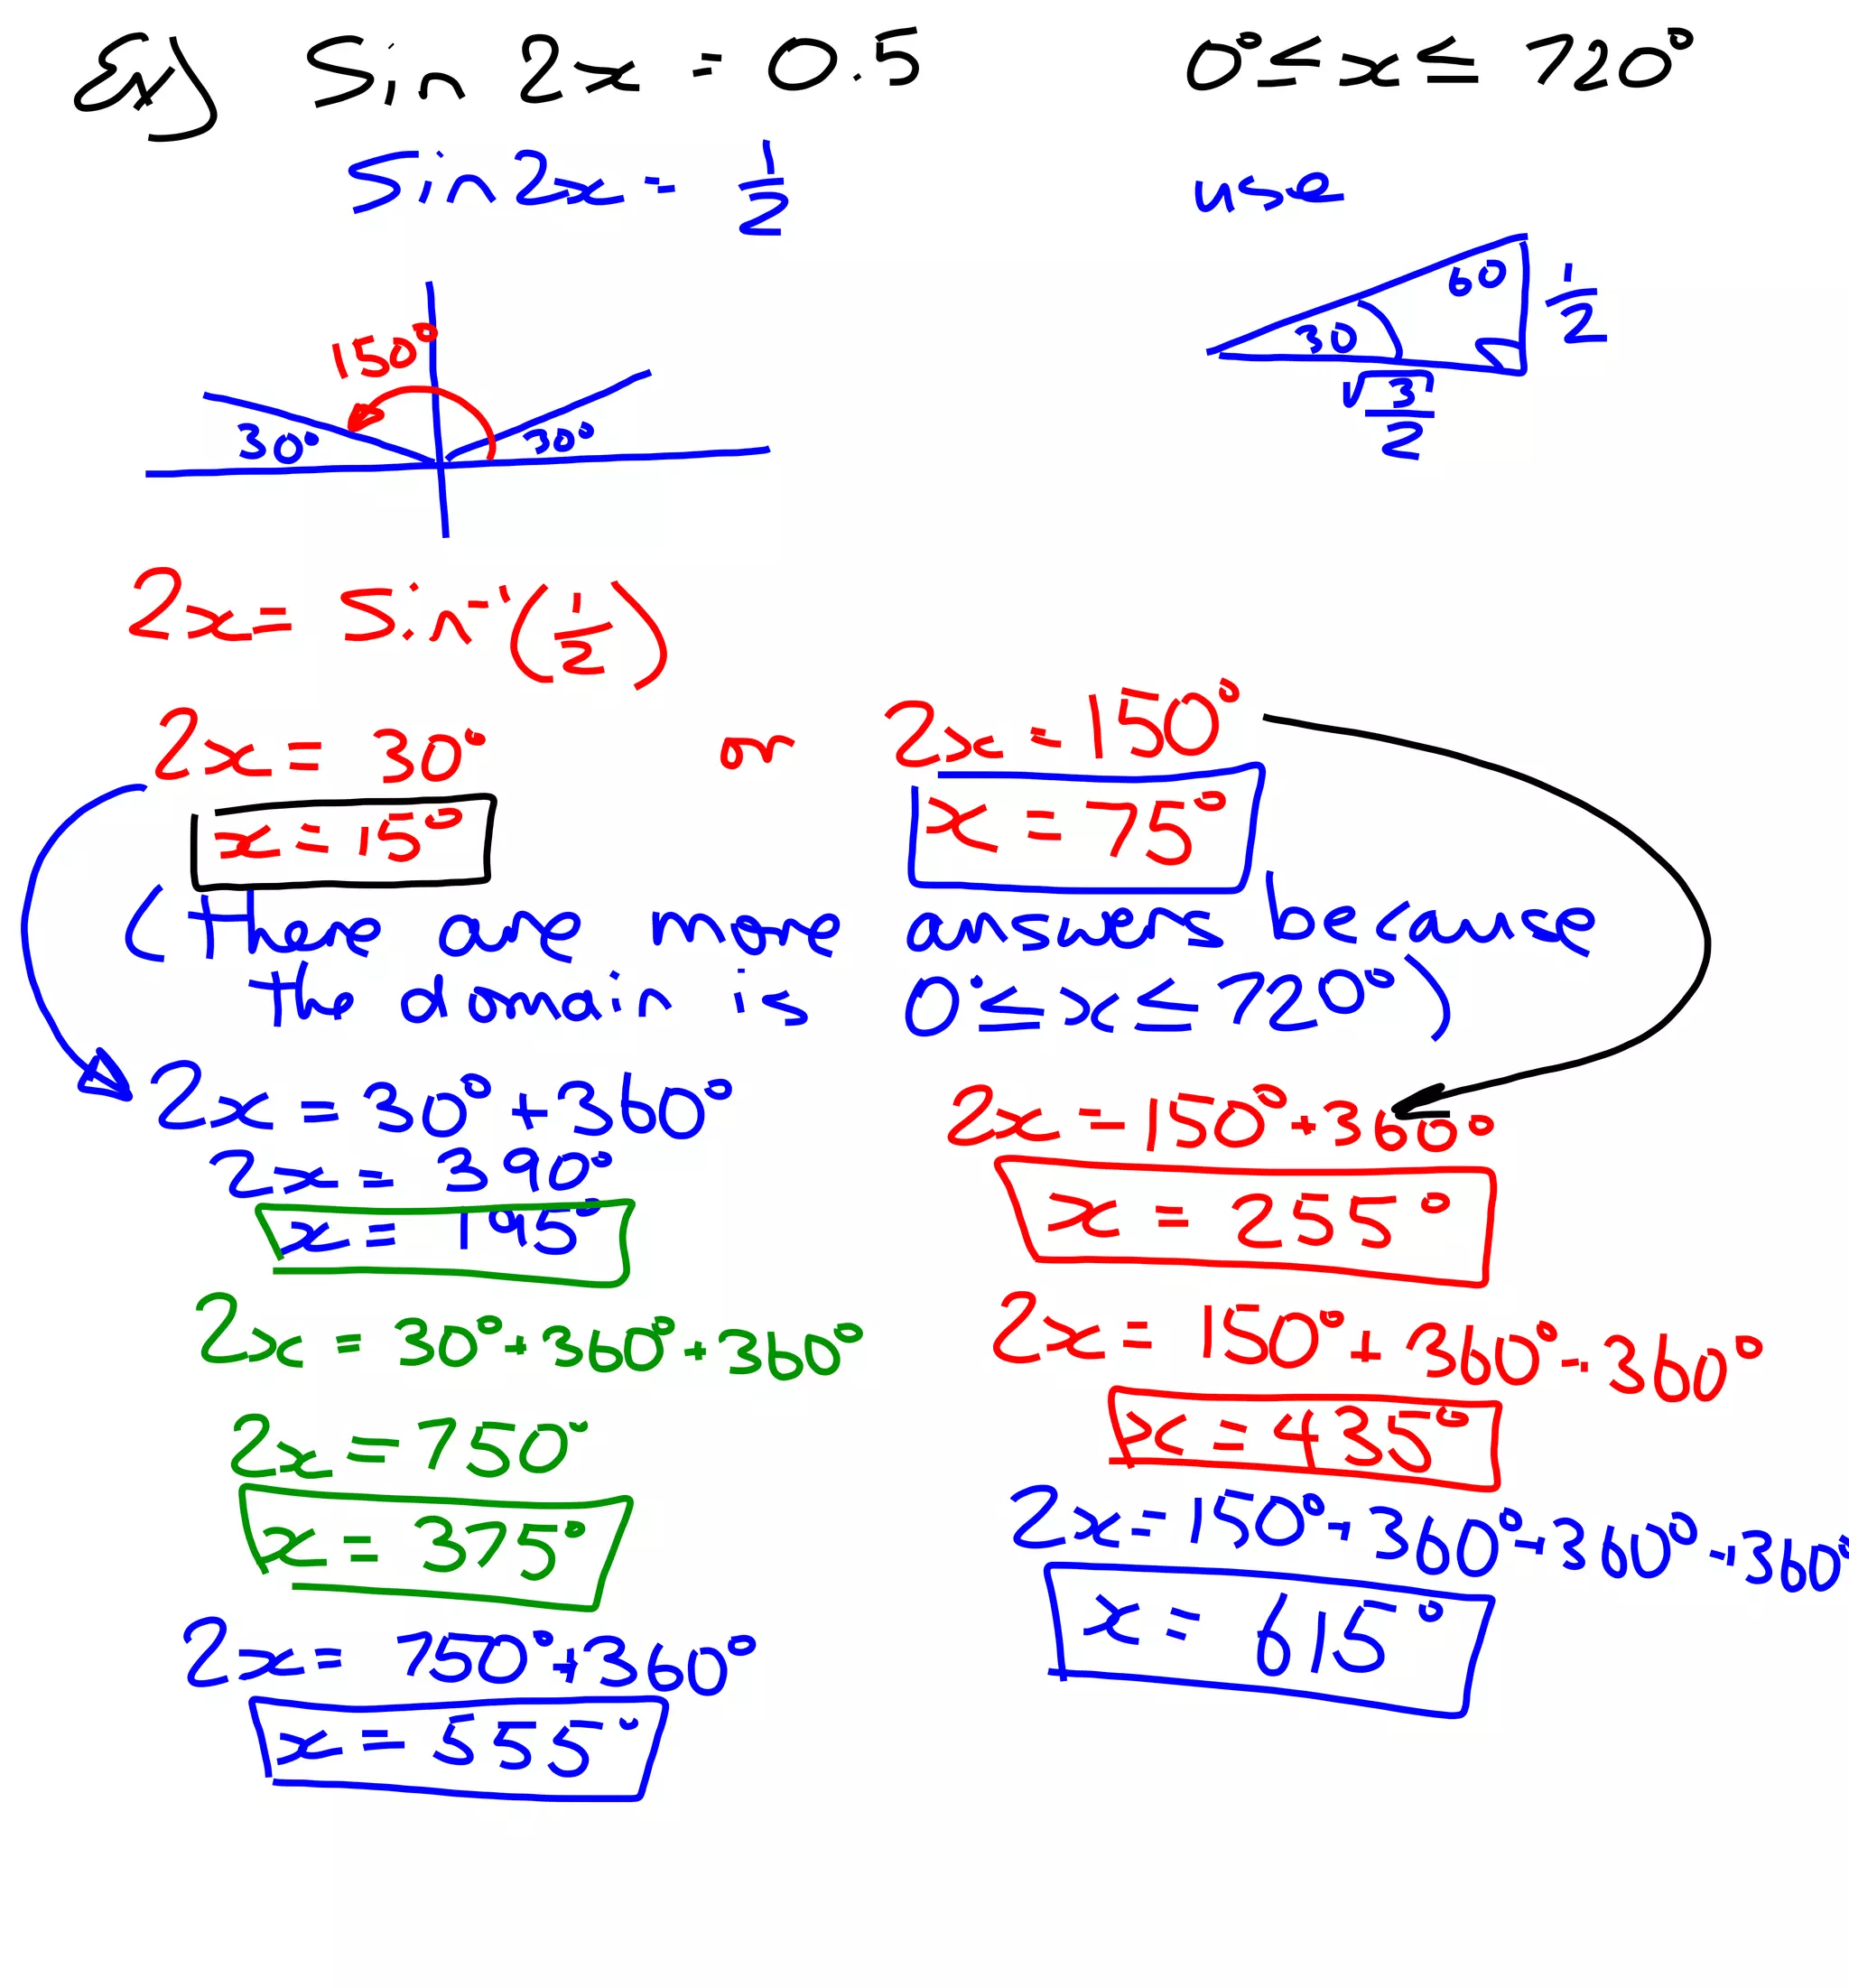 8x) Sin 2x = 0.5 0° ≤ x ≤ 720°
Sin 2x = 1/2 use
60 1/2
30
√3/2
150°
30° 30°
2x = Sin⁻¹(1/2)
2x = 30° or 2x = 150°
x = 15° x = 75°
(There are more answers because
the domain is 0° ≤ x ≤ 720°)
2x = 30° + 360° 2x = 150° + 360°
2x = 390°
x = 195° x = 255°
2x = 30° + 360° + 360° 2x = 150° + 360° + 360°
2x = 750° x = 435°
x = 375° 2x = 150° + 360° + 360° + 360°
2x = 750° + 360° x = 615°
x = 555°